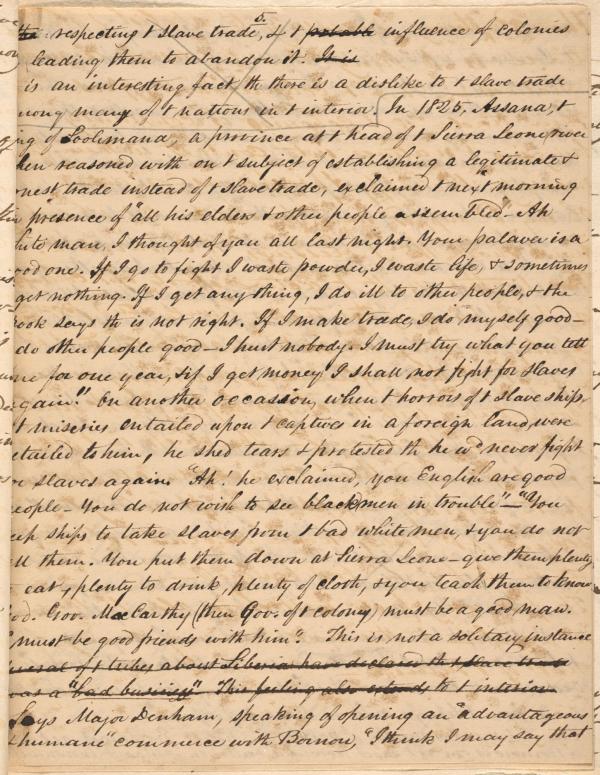 5.
the respecting t slave trade, & t probable influence of colonies
leading them to abandon it. It is
is an interesting fact th there is a dislike to t slave trade
mong many of t nations in t interior. In 1825, Assana, t
ng of Soolimana, a province at t head of t Sierra Leone river
hen reasoned with on t subject of establishing a legitimate &
nest trade instead of t slave trade, exclaimed t next morning
presence of "all his elders & other people assembled" - Ah
hite man, I thought of you all last night. Your palaver is a
ood one. If I go to fight I waste powder, I waste life, & sometimes
get nothing. If I get any thing, I do ill to other people, & the
ook says th is not right. If I make trade, I do myself good -
do other people good - I hurt nobody. I must try what you tell
me for one year, & if I get money I shall not fight for slaves
again." On another occassion, when t horrors of t slave ships,
t miseries entailed upon t captives in a foreign land, were
etailed to him, he shed tears & protested th he wd never fight
r slaves again. "Ah! he exclaimed, you English are good
eople - You do not wish to see black men in trouble" - "You
eep ships to take slaves from t bad white men, & you do not
ll them. You put them down at Sierra Leone - give them plenty
eat, plenty to drink, plenty of cloth, & you teach them to know
od. Gov. MacCarthy (then Gov. of t colony) must be a good man.
must be good friends with him". This is not a solitary instance
everal of t tribes about Liberia have declared th t slave trade
was a "bad business" This feeling also extends to t interior
Says Major Denham, speaking of opening an "advantageous
& humane" commerce with Bornou, "I think I may say that